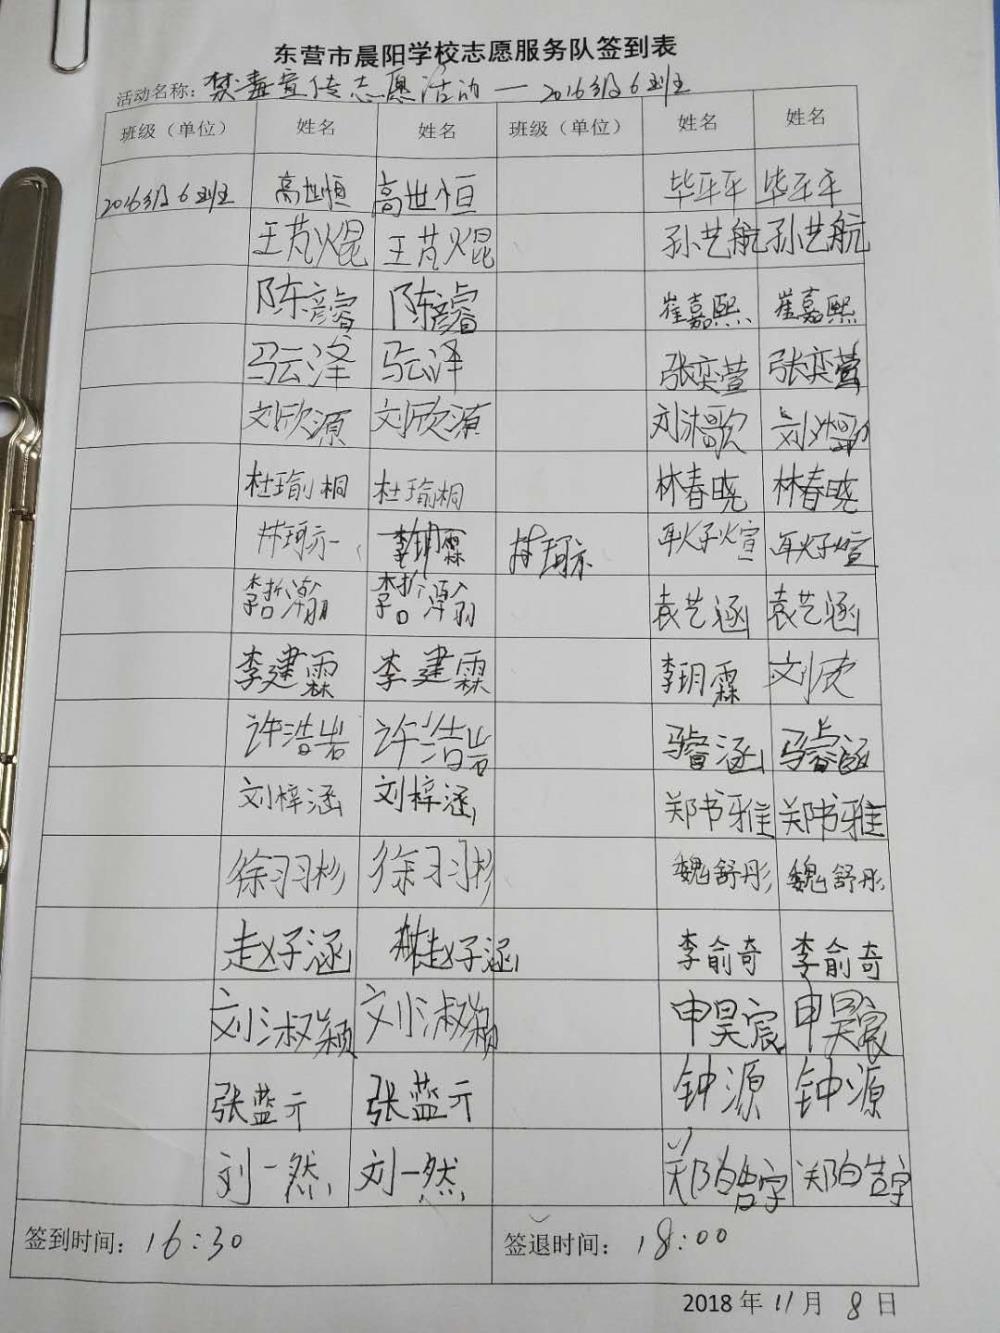 东营市晨阳学校志愿服务队签到表
活动名称：禁毒宣传志愿活动—2016级6班
班级（单位） 姓名 姓名 班级（单位） 姓名 姓名
2016级6班 高世恒 高世恒 毕平平 毕平平
王芃焜 王芃焜 孙艺航 孙艺航
陈彦睿 陈彦睿 崔嘉熙 崔嘉熙
马云泽 马云泽 张奕萱 张奕萱
刘欣源 刘欣源 刘沐歌
杜瑜桐 杜瑜桐 林春晓 林春晓
林珂亦 李玥霖 林珂亦
李哲瀚 李哲瀚 袁艺涵 袁艺涵
李建霖 李建霖 李玥霖 刘欣
许浩岩 许浩岩 马睿涵 马睿涵
刘梓涵 刘梓涵 郑书雅 郑书雅
徐羽杉 徐羽杉 魏舒彤 魏舒彤
赵子涵 赵子涵 李俞奇 李俞奇
刘淑颖 刘淑颖 申昊宸 申昊宸
张蓝亓 张蓝亓 钟源 钟源
刘一然 刘一然
签到时间：16:30 签退时间：18:00
2018年11月8日